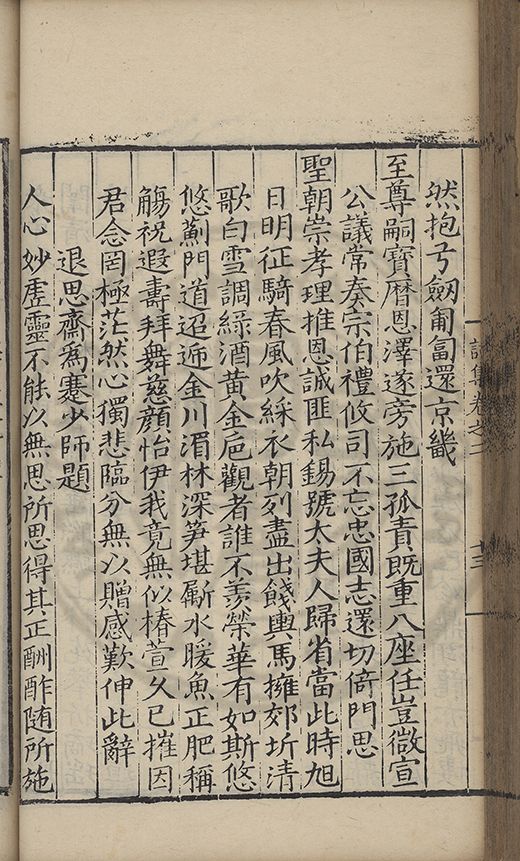 然抱弓劒匍匐還京畿
至尊嗣寶曆恩澤遂旁施三孤責既重八座任豈微宣
公議常奏宗伯禮攸司不忘忠國志還切倚門思
聖朝崇孝理推恩誠匪私錫號太夫人歸省當此時旭
日明征騎春風吹綵衣朝列盡出餞輿馬擁郊圻清
歌白雪調綠酒黄金巵觀者誰不羨榮華有如斯悠
悠薊門道迢遞金川湄林深笋堪斸水暖魚正肥稱
觴祝遐壽拜舞慈顔怡伊我竟無似椿萱久已摧因
君念罔極茫然心獨悲臨分無以贈感歎伸此辭
退思齋爲蹇少師題
人心妙虛靈不能以無思所思得其正酬酢隨所施
詩集卷之二